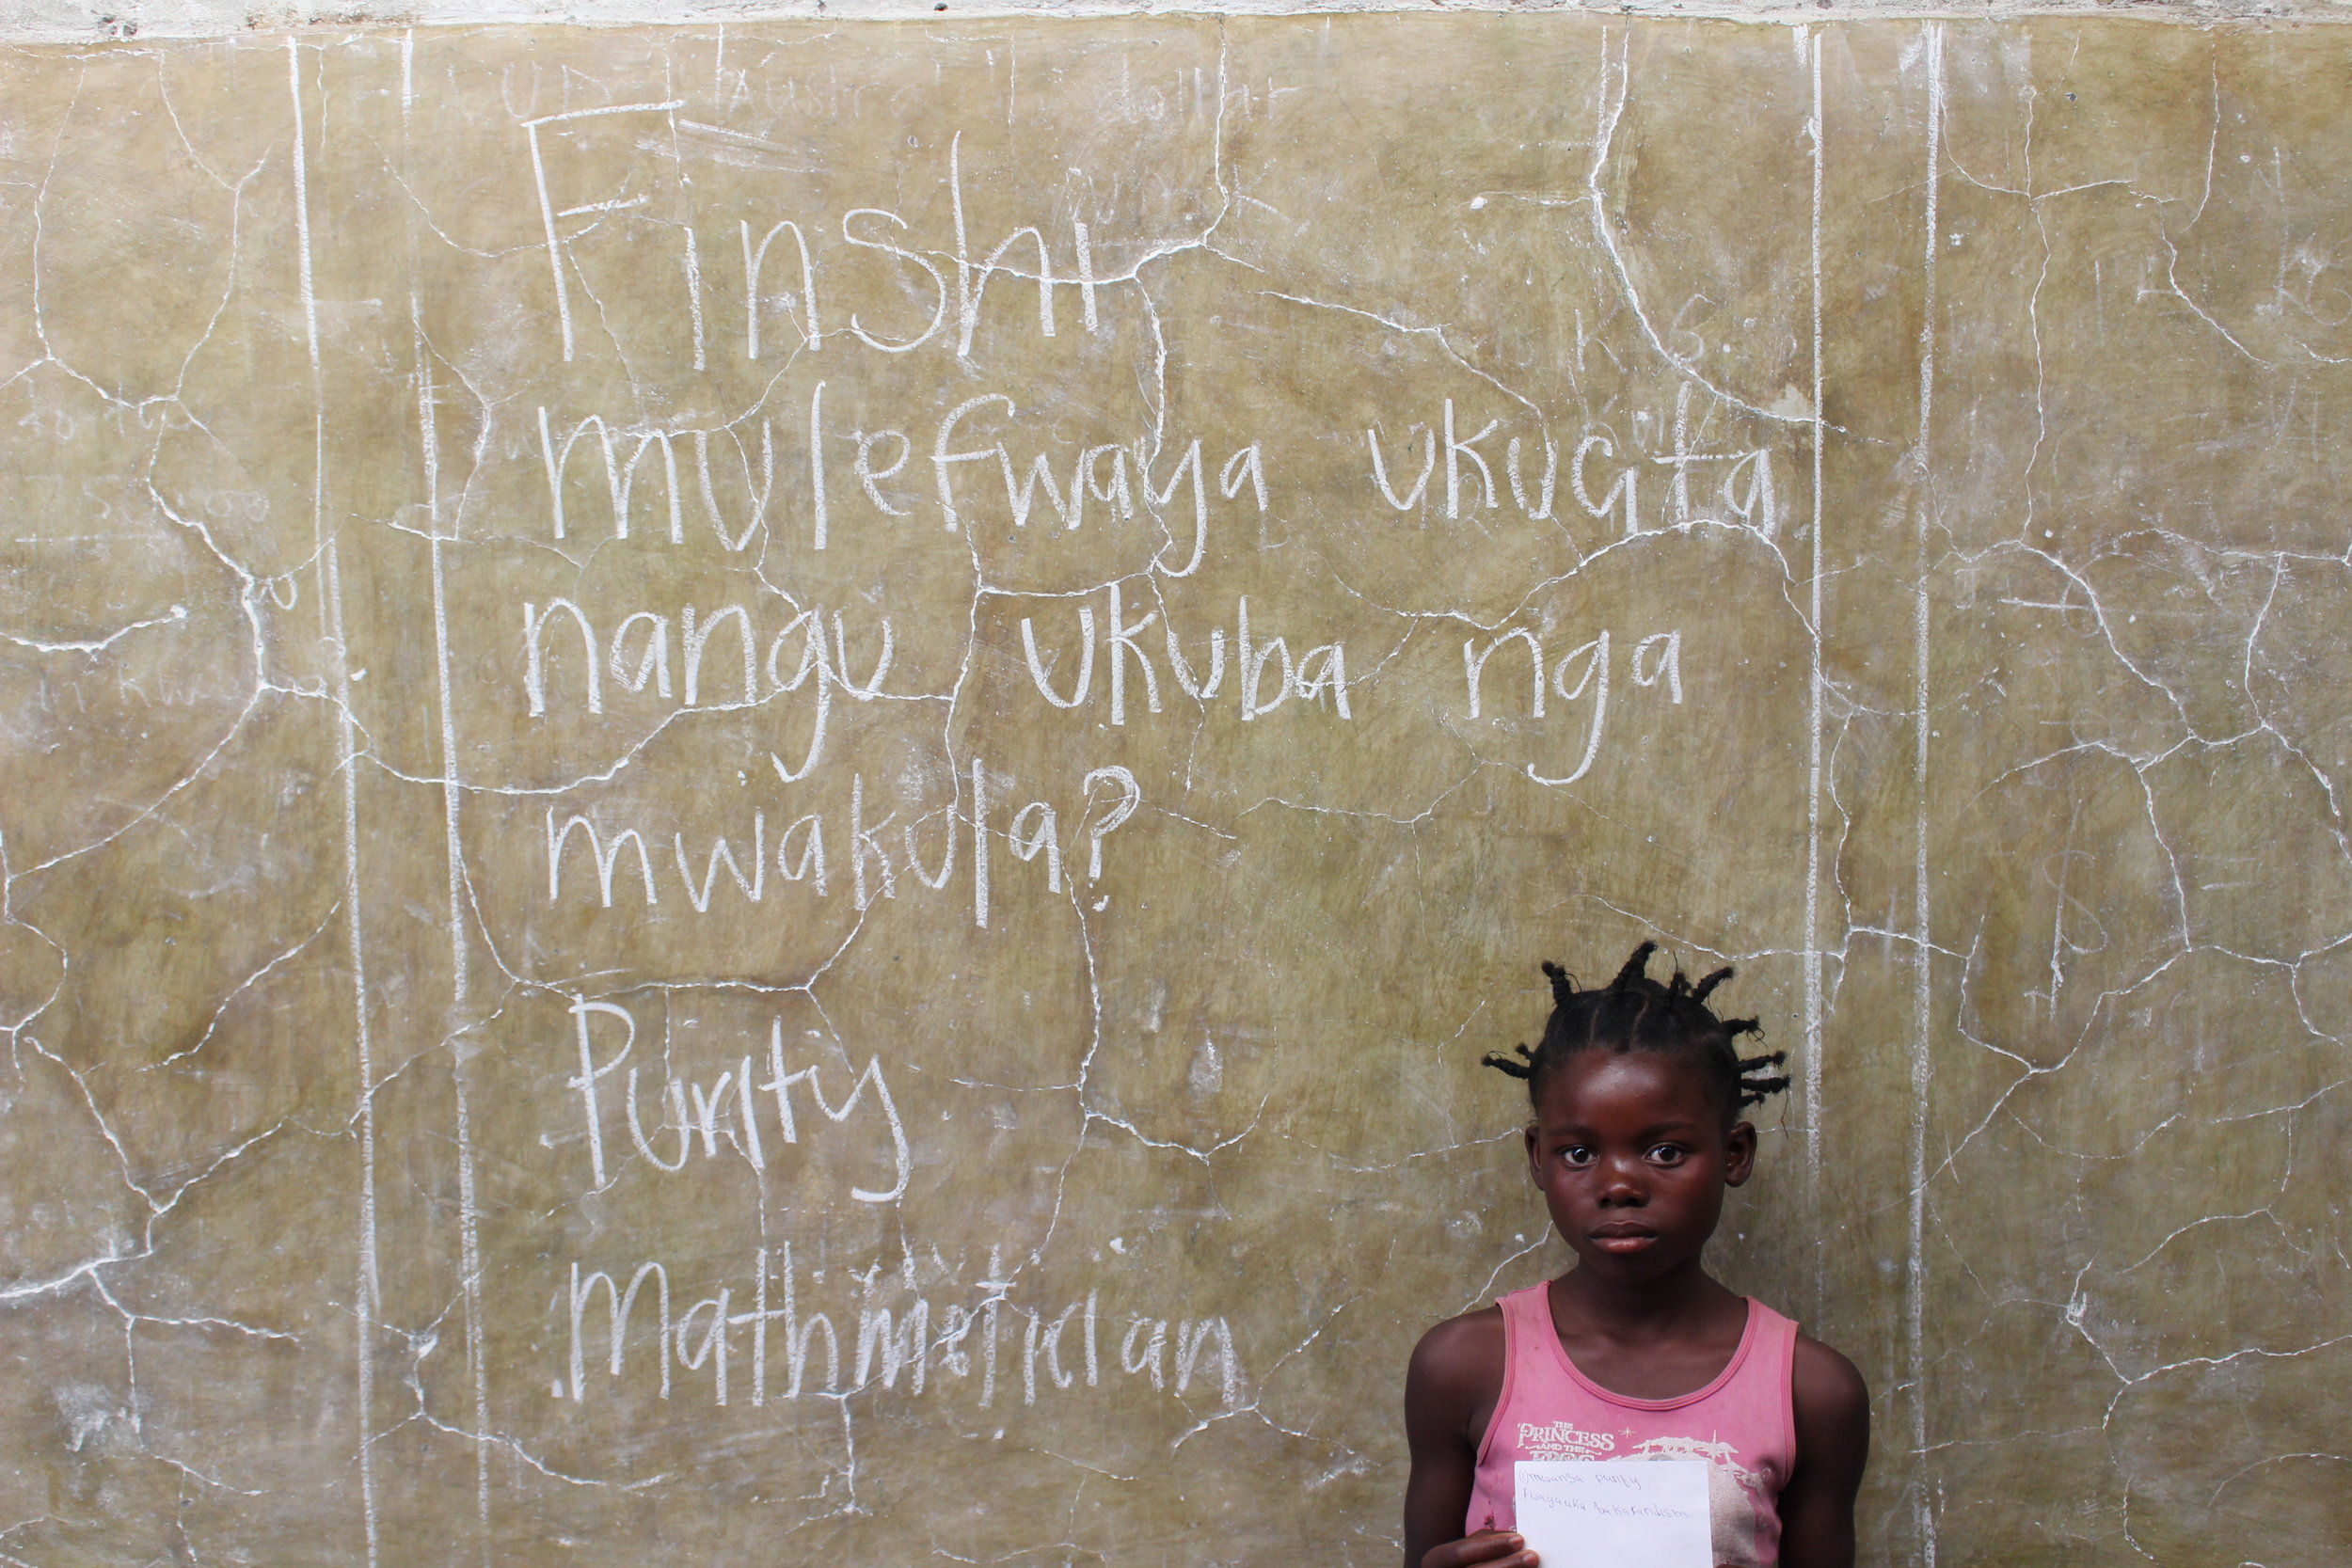 Finshi
mulefwaya ukucita
nangu ukuba nga
mwakula?
Purity
Mathmetician
THE
PRINCESS
AND THE
FROG
mwansa purity